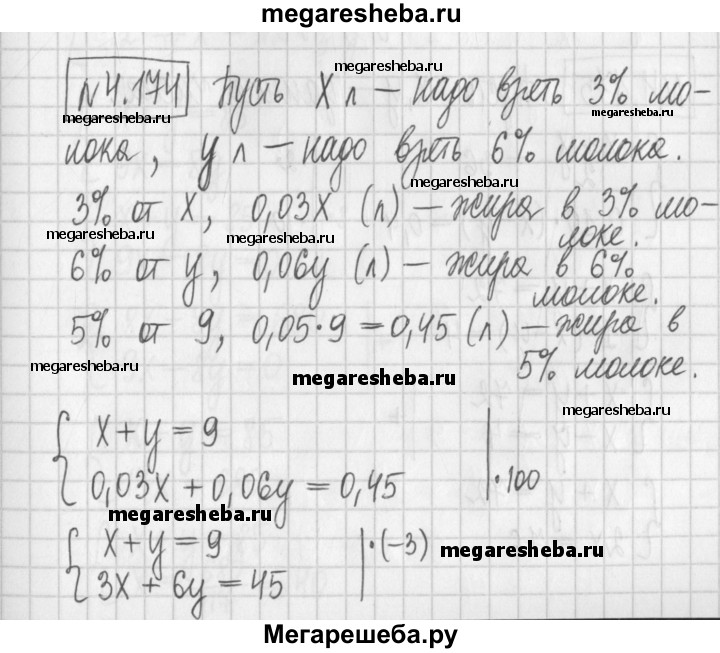 megaresheba.ru
№4.174 Пусть X л – надо взять 3% мо-
megaresheba.ru
megaresheba.ru
megaresheba.ru
лока, у л – надо взять 6% молока.
megaresheba.ru
3% от X, 0,03X (л) – жира в 3% мо-
локе.
megaresheba.ru
megaresheba.ru
6% от у, 0,06у (л) – жира в 6%
молоке.
5% от 9, 0,05·9 = 0,45 (л) – жира в
5% молоке.
megaresheba.ru
megaresheba.ru
megaresheba.ru
X + у = 9
0,03X + 0,06у = 0,45 | ·100
megaresheba.ru
X + у = 9 | ·(–3)
megaresheba.ru
3X + 6у = 45
Мегарешеба.ру